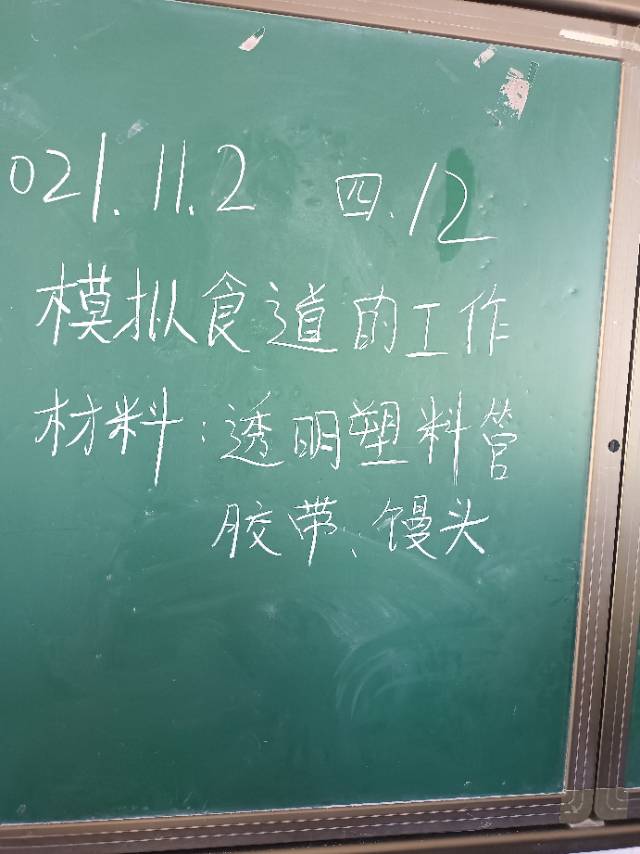 021.11.2 四.12
模拟食道的工作
材料:透明塑料管
胶带、馒头